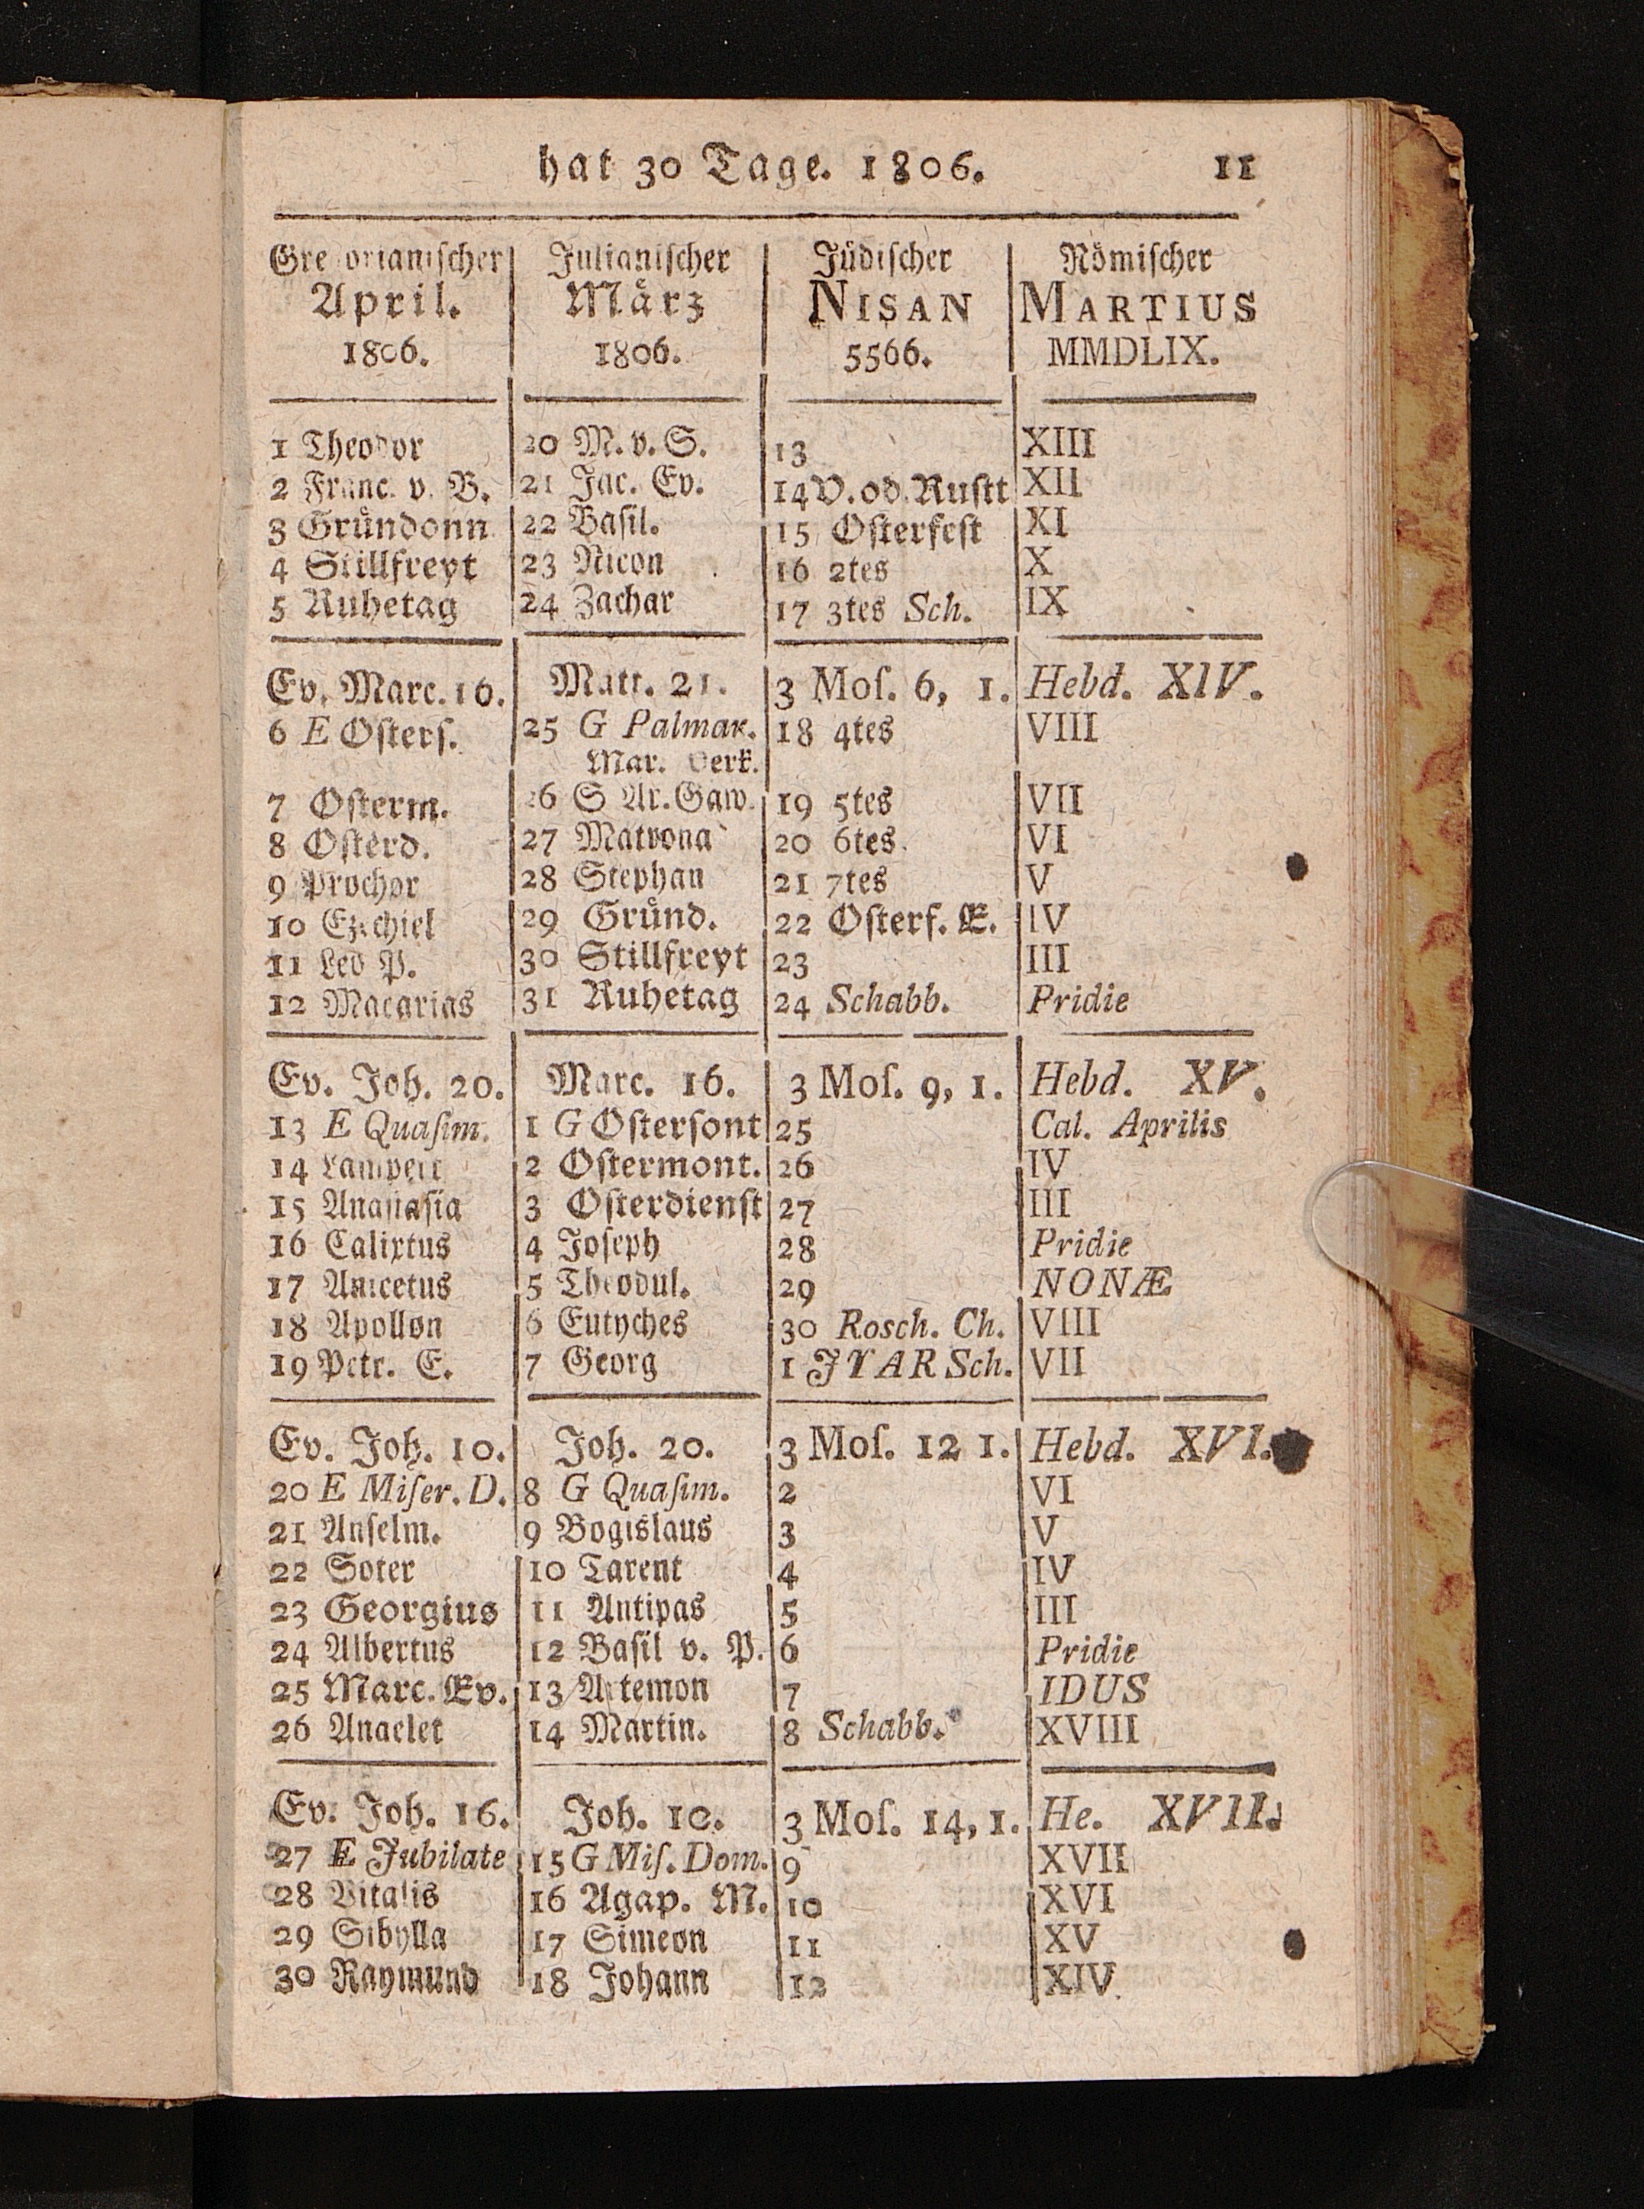 hat 30 Tage. 1806. 11
Gregorianischer Julianischer Jüdischer Römischer
April. März NISAN MARTIUS
1806. 1806. 5566. MMDLIX.
1 Theodor 20 M. v. S. 13 XIII
2 Franc. v. B. 21 Jac. Ev. 14 V. od. Rustt XII
3 Gründonn 22 Basil. 15 Osterfest XI
4 Stillfreyt 23 Nicon 16 2tes X
5 Ruhetag 24 Zachar 17 3tes Sch. IX
Ev. Marc. 16. Matt. 21. 3 Mos. 6, 1. Hebd. XIV.
6 E Osters. 25 G Palmar. 18 4tes VIII
Mar. Verk.
7 Osterm. 26 S Ar. Gaw. 19 5tes VII
8 Osterd. 27 Matrona 20 6tes. VI
9 Prochor 28 Stephan 21 7tes V
10 Ezechiel 29 Gründ. 22 Osterf. E. IV
11 Leo P. 30 Stillfreyt 23 III
12 Macarias 31 Ruhetag 24 Schabb. Pridie
Ev. Joh. 20. Marc. 16. 3 Mos. 9, 1. Hebd. XV.
13 E Quasim. 1 G Ostersont 25 Cal. Aprilis
14 Lampert 2 Ostermont. 26 IV
15 Anastasia 3 Osterdienst 27 III
16 Calixtus 4 Joseph 28 Pridie
17 Anicetus 5 Theodul. 29 NONÆ
18 Apollon 6 Eutyches 30 Rosch. Ch. VIII
19 Petr. E. 7 Georg 1 JYAR Sch. VII
Ev. Joh. 10. Joh. 20. 3 Mos. 12 1. Hebd. XVI.
20 E Miser. D. 8 G Quasim. 2 VI
21 Anselm. 9 Bogislaus 3 V
22 Soter 10 Tarent 4 IV
23 Georgius 11 Antipas 5 III
24 Albertus 12 Basil v. P. 6 Pridie
25 Marc. Ev. 13 Artemon 7 IDUS
26 Anaclet 14 Martin. 8 Schabb. XVIII
Ev. Joh. 16. Joh. 10. 3 Mos. 14, 1. He. XVII.
27 E Jubilate 15 G Mis. Dom. 9 XVII
28 Vitalis 16 Agap. M. 10 XVI
29 Sibylla 17 Simeon 11 XV
30 Raymund 18 Johann 12 XIV.